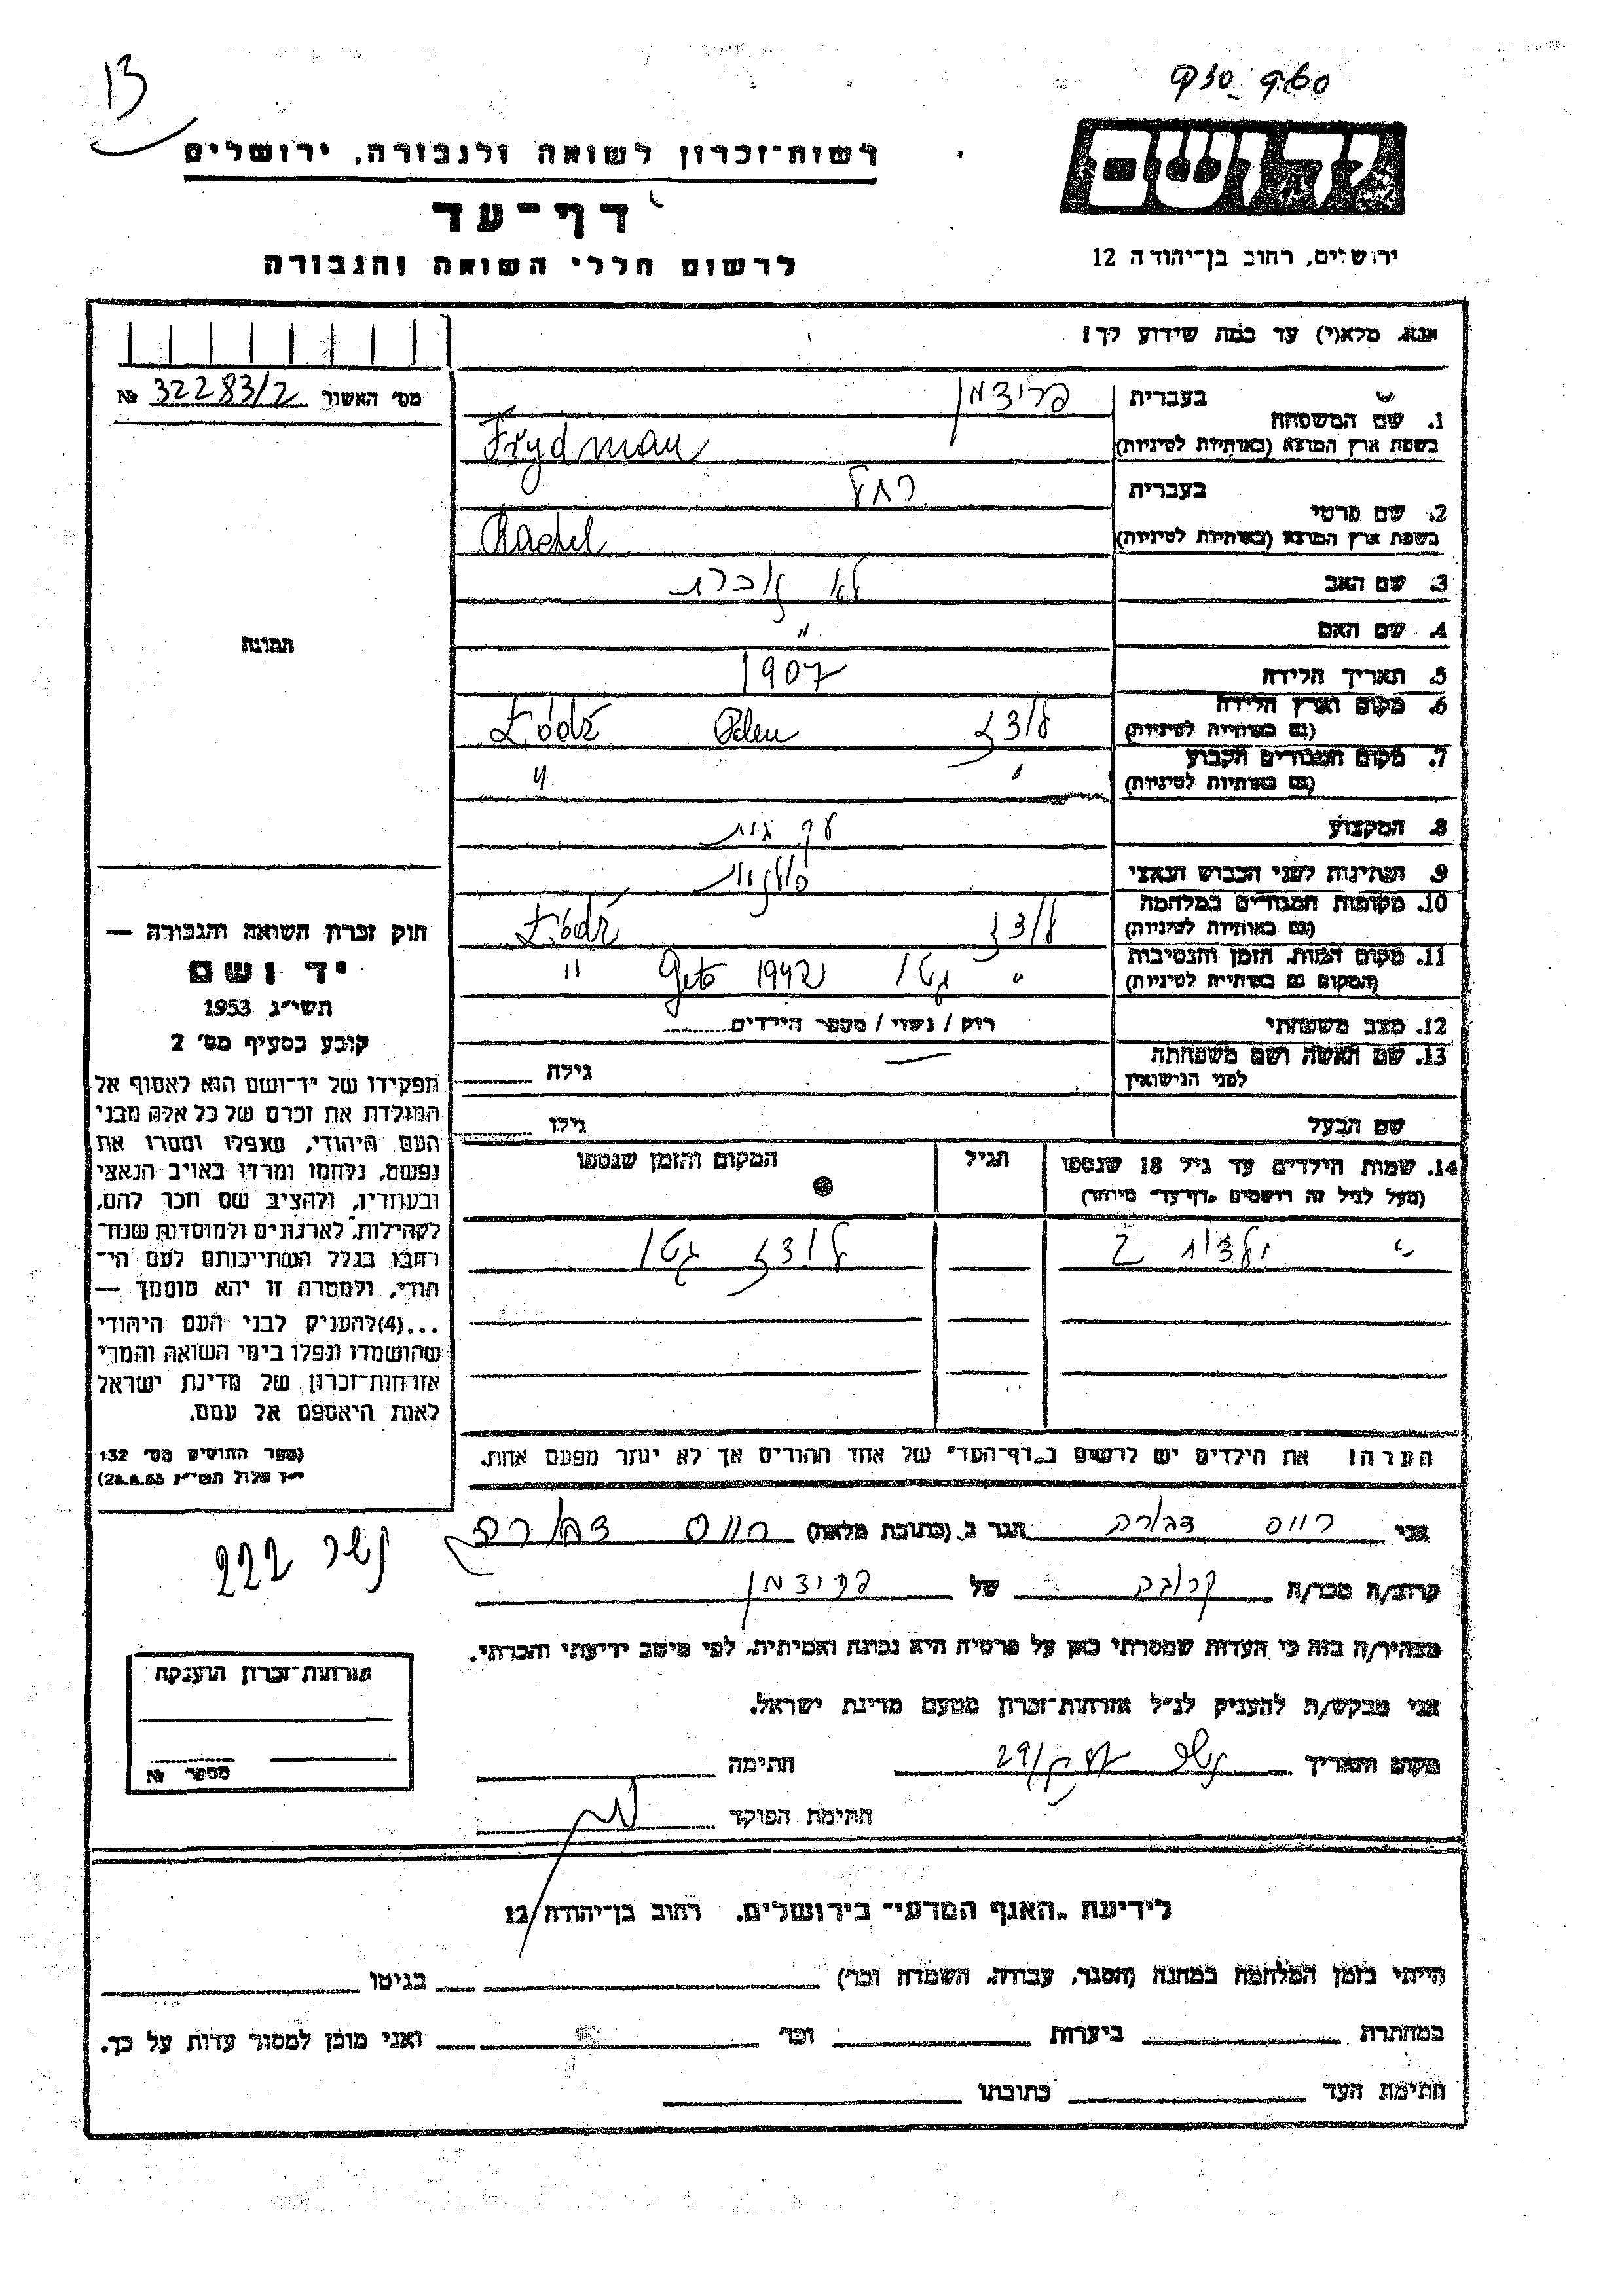 13
יד ושם
רשות־זכרון לשואה ולגבורה, ירושלים
דף־עד
לרשום חללי השואה והגבורה
ירושלים, רחוב בן־יהודה 12
אנא, מלא(י) עד כמה שידוע לך!
מס' האשור 32283/2 №
בעברית פרידמן
1. שם המשפחה
בשפת ארץ המוצא (באותיות לטיניות) Frydman
בעברית רחל
2. שם פרטי
בשפת ארץ המוצא (באותיות לטיניות) Rachel
3. שם האב לא זוכרת
4. שם האם "
5. תאריך הלידה 1907
6. מקום וארץ הלידה
(גם באותיות לטיניות) לודז Polen Łódź
7. מקום המגורים הקבוע
(גם באותיות לטיניות) " "
8. המקצוע עק. בית
9. הנתינות לפני הכבוש הנאצי פולנית
10. מקומות המגורים במלחמה
(גם באותיות לטיניות) לודז Łódź
11. מקום המות, הזמן והנסיבות
(המקום גם באותיות לטיניות) " גטו 1942 Geto "
12. מצב משפחתי רווק / נשוי / מספר הילדים
13. שם האשה ושם משפחתה
לפני הנישואין גילה
שם הבעל גילו
14. שמות הילדים עד גיל 18 שנספו
(מעל לגיל זה רושמים "דף־עד" מיוחד)
הגיל
המקום והזמן שנספו
ילדים 2 לודז גטו
הערה! את הילדים יש לרשום ב"דף־העד" של אחד ההורים אך לא יותר מפעם אחת.
תמונה
חוק זכרון השואה והגבורה —
יד ושם
תשי״ג 1953
קובע בסעיף מס׳ 2
תפקידו של יד־ושם הוא לאסוף אל
המולדת את זכרם של כל אלה מבני
העם היהודי, שנפלו ומסרו את
נפשם, נלחמו ומרדו באויב הנאצי
ובעוזריו, ולהציב שם וזכר להם,
לקהילות, לארגונים ולמוסדות שנח־
רבו בגלל השתייכותם לעם הי־
הודי, ולמטרה זו יהא מוסמך —
...(4)להעניק לבני העם היהודי
שהושמדו ונפלו בימי השואה והמרי
אזרחות־זכרון של מדינת ישראל
לאות היאספם אל עמם.
(ספר החוקים מס׳ 132
(28.8.53
אני דבורה הגר ב (כתובת מלאה)
נשר 222
קרוב/ה מכר/ה קרובה של פרידמן
מצהיר/ה בזה כי העדות שמסרתי כאן על פרטיה היא נכונה ואמיתית, לפי מיטב ידיעתי והכרתי.
אני מבקש/ת להעניק לנ״ל אזרחות־זכרון מטעם מדינת ישראל.
מקום ותאריך נשר חתימה
חתימת הפוקד
אזרחות־זכרון הוענקה
מספר №
לידיעת "האגף המדעי" בירושלים. רחוב בן־יהודה 12
הייתי בזמן המלחמה במחנה (הסגר, עבודה, השמדה וכו׳) בגיטו
במחתרת ביערות וכו׳ ואני מוכן למסור עדות על כך.
חתימת העד כתובתו